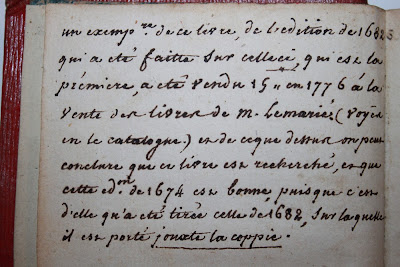 un exemp.re de ce livre, de l'edition de 1682
qui a eté faitte sur celleci, qui est la
prémiere, a eté vendu 15 ₶ en 1776 á la
vente des livres de m. Lemarié. (voyés
en le catalogue.) et de ceque dessus on peut
conclure que ce livre est recherché, et que
cette ed.on de 1674 est bonne, puisque c'est
d'elle qu'a eté tirée celle de 1682, sur laquelle
il est porté jouxte la coppie.